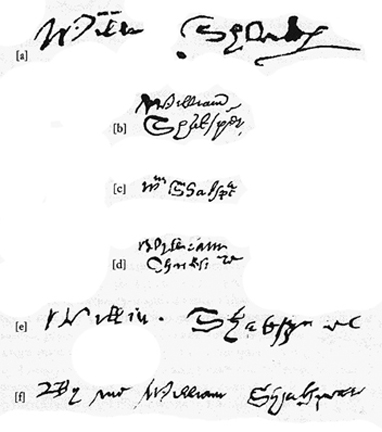 [a] Willm Shakp
William
[b] Shakspēr
[c] Wm Shakspē
William
[d] Shakspere
[e] Willm Shakspere
[f] By me William Shakspeare